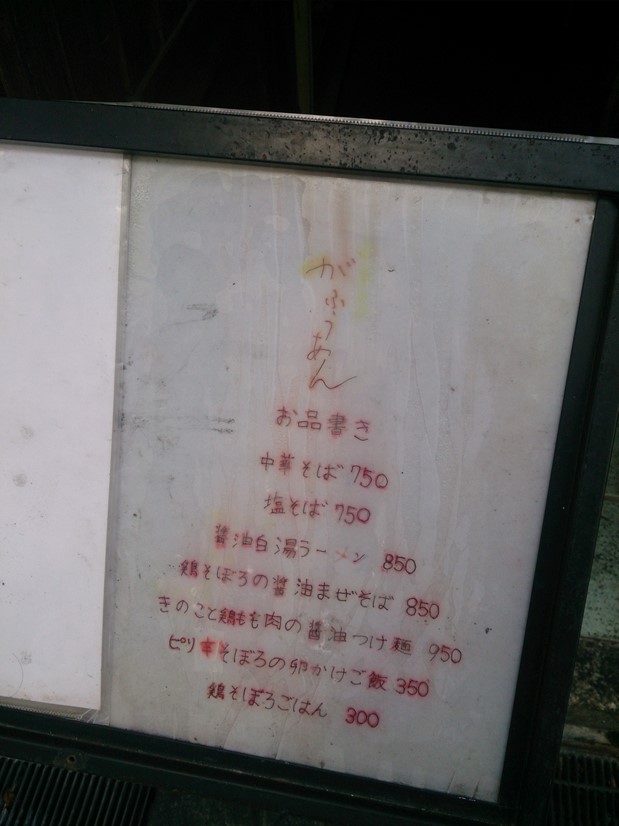 がふうあん
お品書き
中華そば 750
塩そば 750
醤油白湯ラーメン 850
鶏そぼろの醤油まぜそば 850
きのこと鶏もも肉の醤油つけ麺 950
ピリ辛そぼろの卵かけご飯 350
鶏そぼろごはん 300